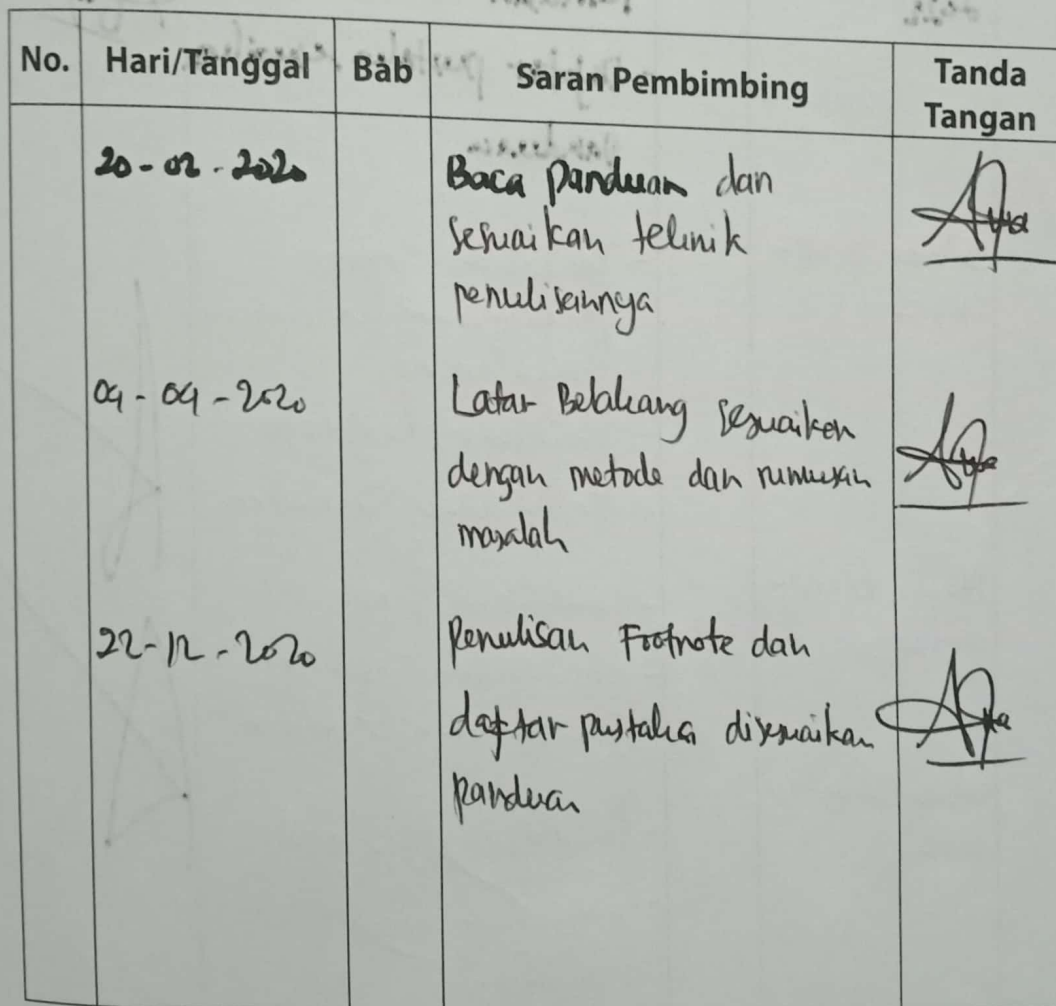 No. Hari/Tanggal Bab Saran Pembimbing Tanda Tangan
20-02-2020 Baca panduan dan
sesuaikan teknik
penulisannya
04-04-2020 Latar Belakang sesuaikan
dengan metode dan rumusan
masalah
22-12-2020 Penulisan Footnote dan
daftar pustaka disesuaikan
panduan